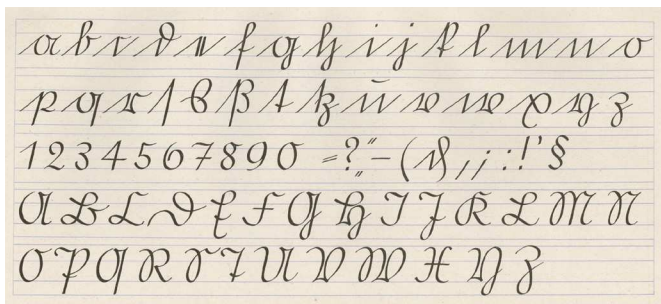 a b c d e f g h i j k l m n o
p q r ſ s ß t tz ū v w x y z
1 2 3 4 5 6 7 8 9 0 = ? „ “ – ( & , ; : ! ’ §
A B C D E F G H I J K L M N
O P Q R S T U V W X Y Z